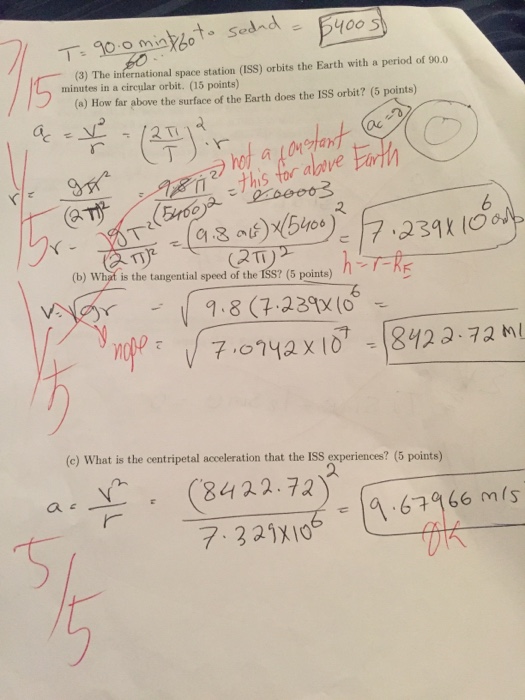 T = 90.0 min × 60 to secnd = 5400 s
60
7/15
(3) The international space station (ISS) orbits the Earth with a period of 90.0
minutes in a circular orbit. (15 points)
(a) How far above the surface of the Earth does the ISS orbit? (5 points)
ac = v²/r = (2π/T)² · r
not a constant
this for above Earth
(2π)² (5400)² = 0.00003
r = gT²/(2π)² = (9.8 m/s²) × (5400)²/(2π)² = 7.239 × 10⁶
1/5
h = r - RE
(b) What is the tangential speed of the ISS? (5 points)
v = √gr = √9.8 (7.239×10⁶ =
nope = √7.0942 × 10⁷ = 8422.72 m/
1/5
(c) What is the centripetal acceleration that the ISS experiences? (5 points)
a = v²/r = (8422.72)²/7.329×10⁶ = 9.67966 m/s
OK
5/5